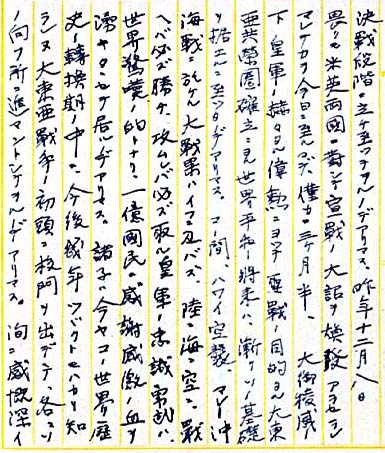 決戦段階ニ立チ至ツテヲルノデアリマス。昨年十二月八日
畏クモ米英両國ニ對シテ宣戰ノ大詔ヲ煥發アラセラレ
マシテカラ今日ニ至ルマデ、僅カ三ヶ月半、大御稜威ノ
下、皇軍ノ赫々タル偉勲ニヨツテ聖戰ノ目的タル大東
亜共榮圏確立ニ見世界平和ノ将来ハ漸ク基礎
ヲ据エルニ至ツタノデアリマス。コノ間、ハワイ空襲、マレー沖
海戰ニ於ケル大戰果ハイフニ及バズ、陸ニ海ニ空ニ戰
ヘバ必ズ勝チ、攻ムレバ必ズ取ル皇軍ノ忠誠勇武ハ
世界驚嘆ノ的トナリ、一億國民ノ感謝感激ノ血ヲ
湧キタヽセテ居ルノデアリマス。諸子ハ今ヤコノ世界歴
史ノ轉換期ノ中ニ、今後幾年ツヾクトモハカリ知
ラレヌ大東亜戰争ノ初頭ニ校門ヲ出デテ、各々ソ
ノ向フ所ニ進マントシテヲルノデアリマス。洵ニ感慨深イ